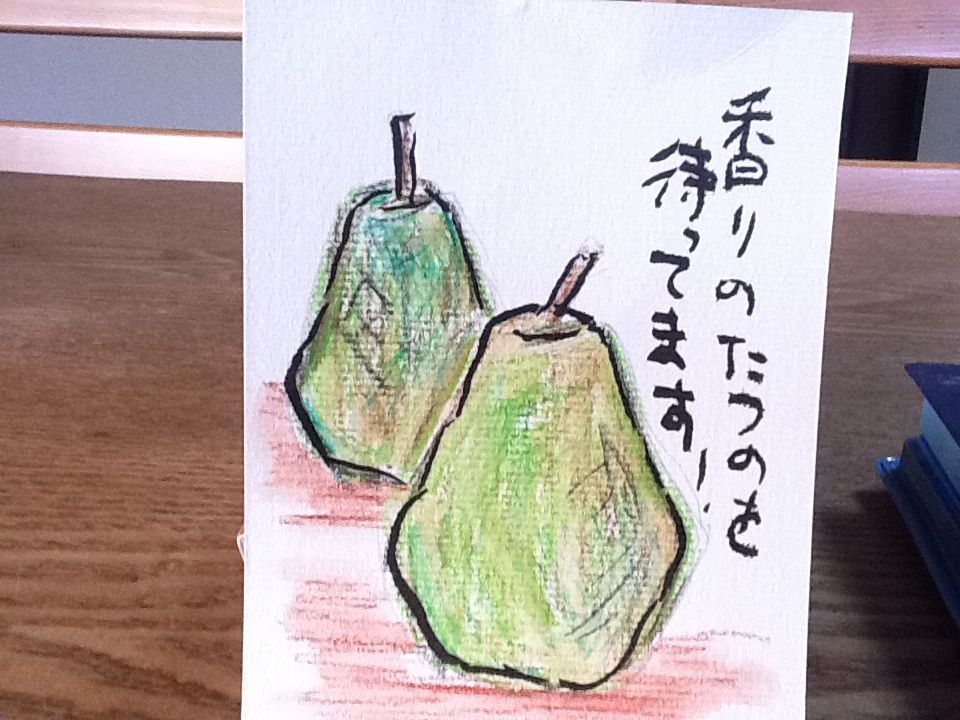 香りのたつのを
待ってます!